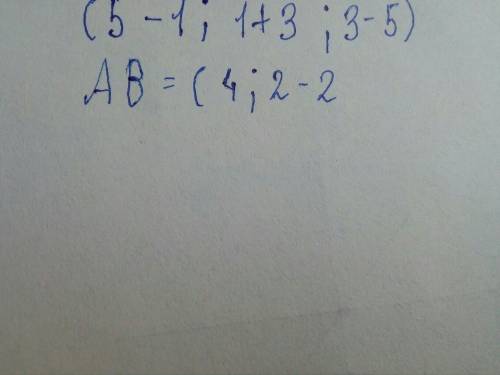 (5 - 1 ; 1+3 ; 3-5)
AB = ( 4 ; 2 - 2